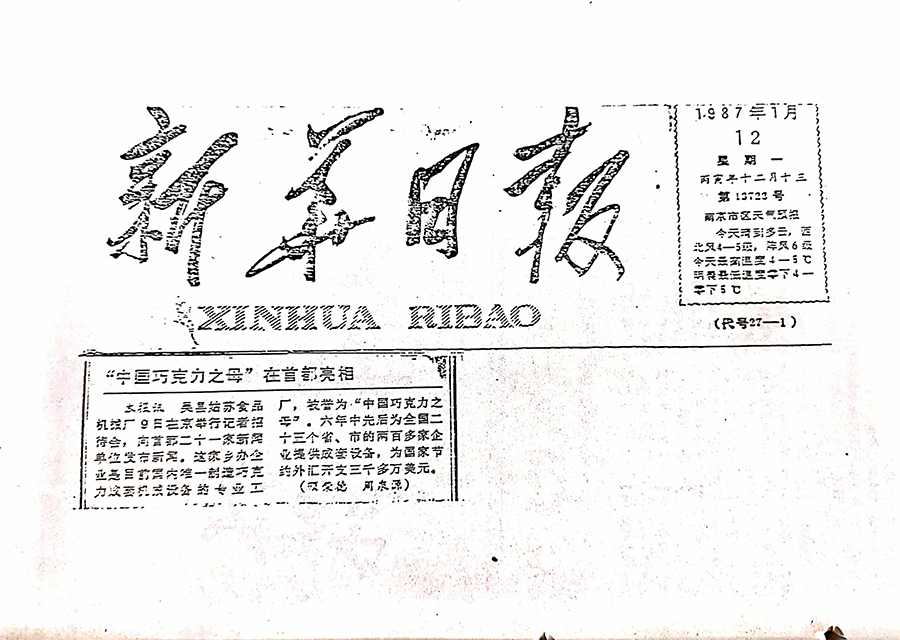 新华日报
XINHUA RIBAO
1987年1月
12
星期一
丙寅年十二月十三
第13723号
南京市区天气预报
今天晴到多云，西
北风4—5级，阵风6级
今天最高温度4—5℃
明晨最低温度零下4—
零下5℃
（代号27—1）
“中国巧克力之母”在首都亮相
本报讯 吴县姑苏食品
机械厂9日在京举行记者招
待会，向首都二十一家新闻
单位发布新闻。这家乡办企
业是目前国内唯一制造巧克
力成套机械设备的专业工
厂，被誉为“中国巧克力之
母”。六年中先后为全国二
十三个省、市的两百多家企
业提供成套设备，为国家节
约外汇开支三千多万美元。